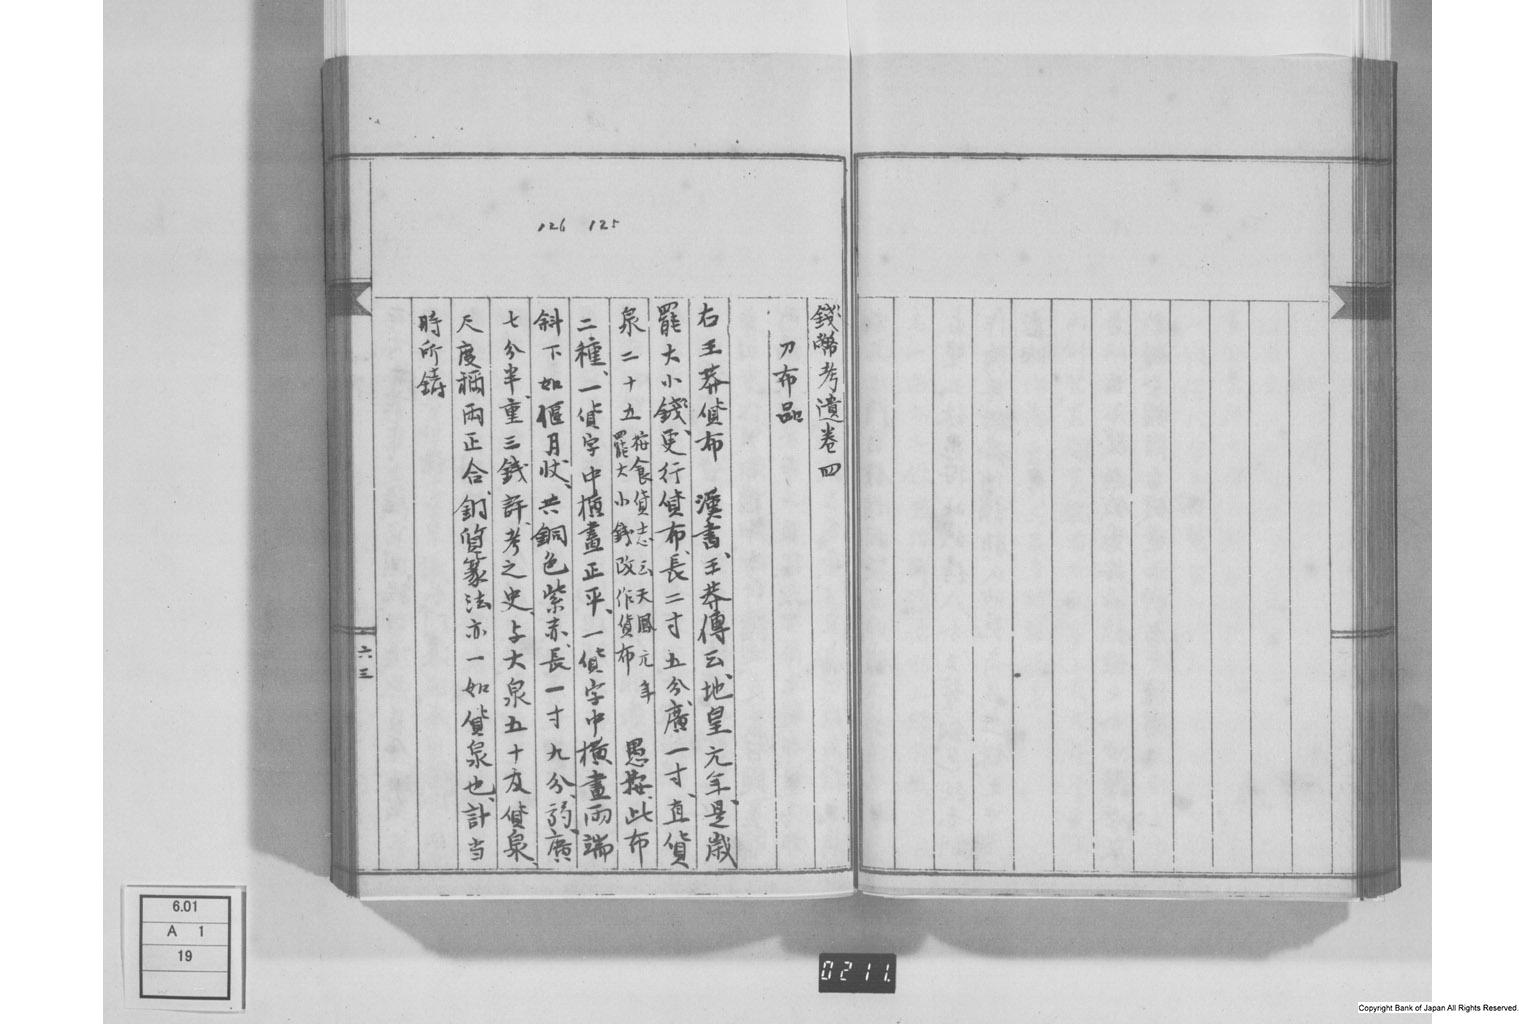 錢幣考遺卷四
刀布品
右王莽貨布 漢書、王莽傳云、地皇元年、是歲
罷大小錢、更行貨布、長二寸五分、廣一寸、直貨
泉二十五 按食貨志云天鳳元年
罷大小錢改作貨布 愚按此布
二種、一貨字中橫畫正平、一貨字中橫畫兩端
斜下如偃月狀、共銅色紫赤、長一寸九分、弱、廣
七分半、重三錢許、考之史、与大泉五十及貨泉、
尺度稱兩正合、銅質篆法亦一如貨泉也、計当
時所鑄
125
126
六三
6.01
A 1
19
0211.
Copyright Bank of Japan All Rights Reserved.